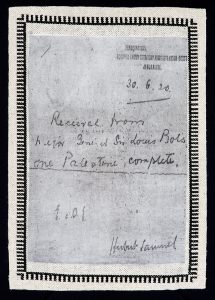 HEADQUARTERS,
JERUSALEM.
30. 6. 20.
Received from
Major General Sir Louis Bols
one Palestine, complete.
E. & O. E.
Herbert Samuel